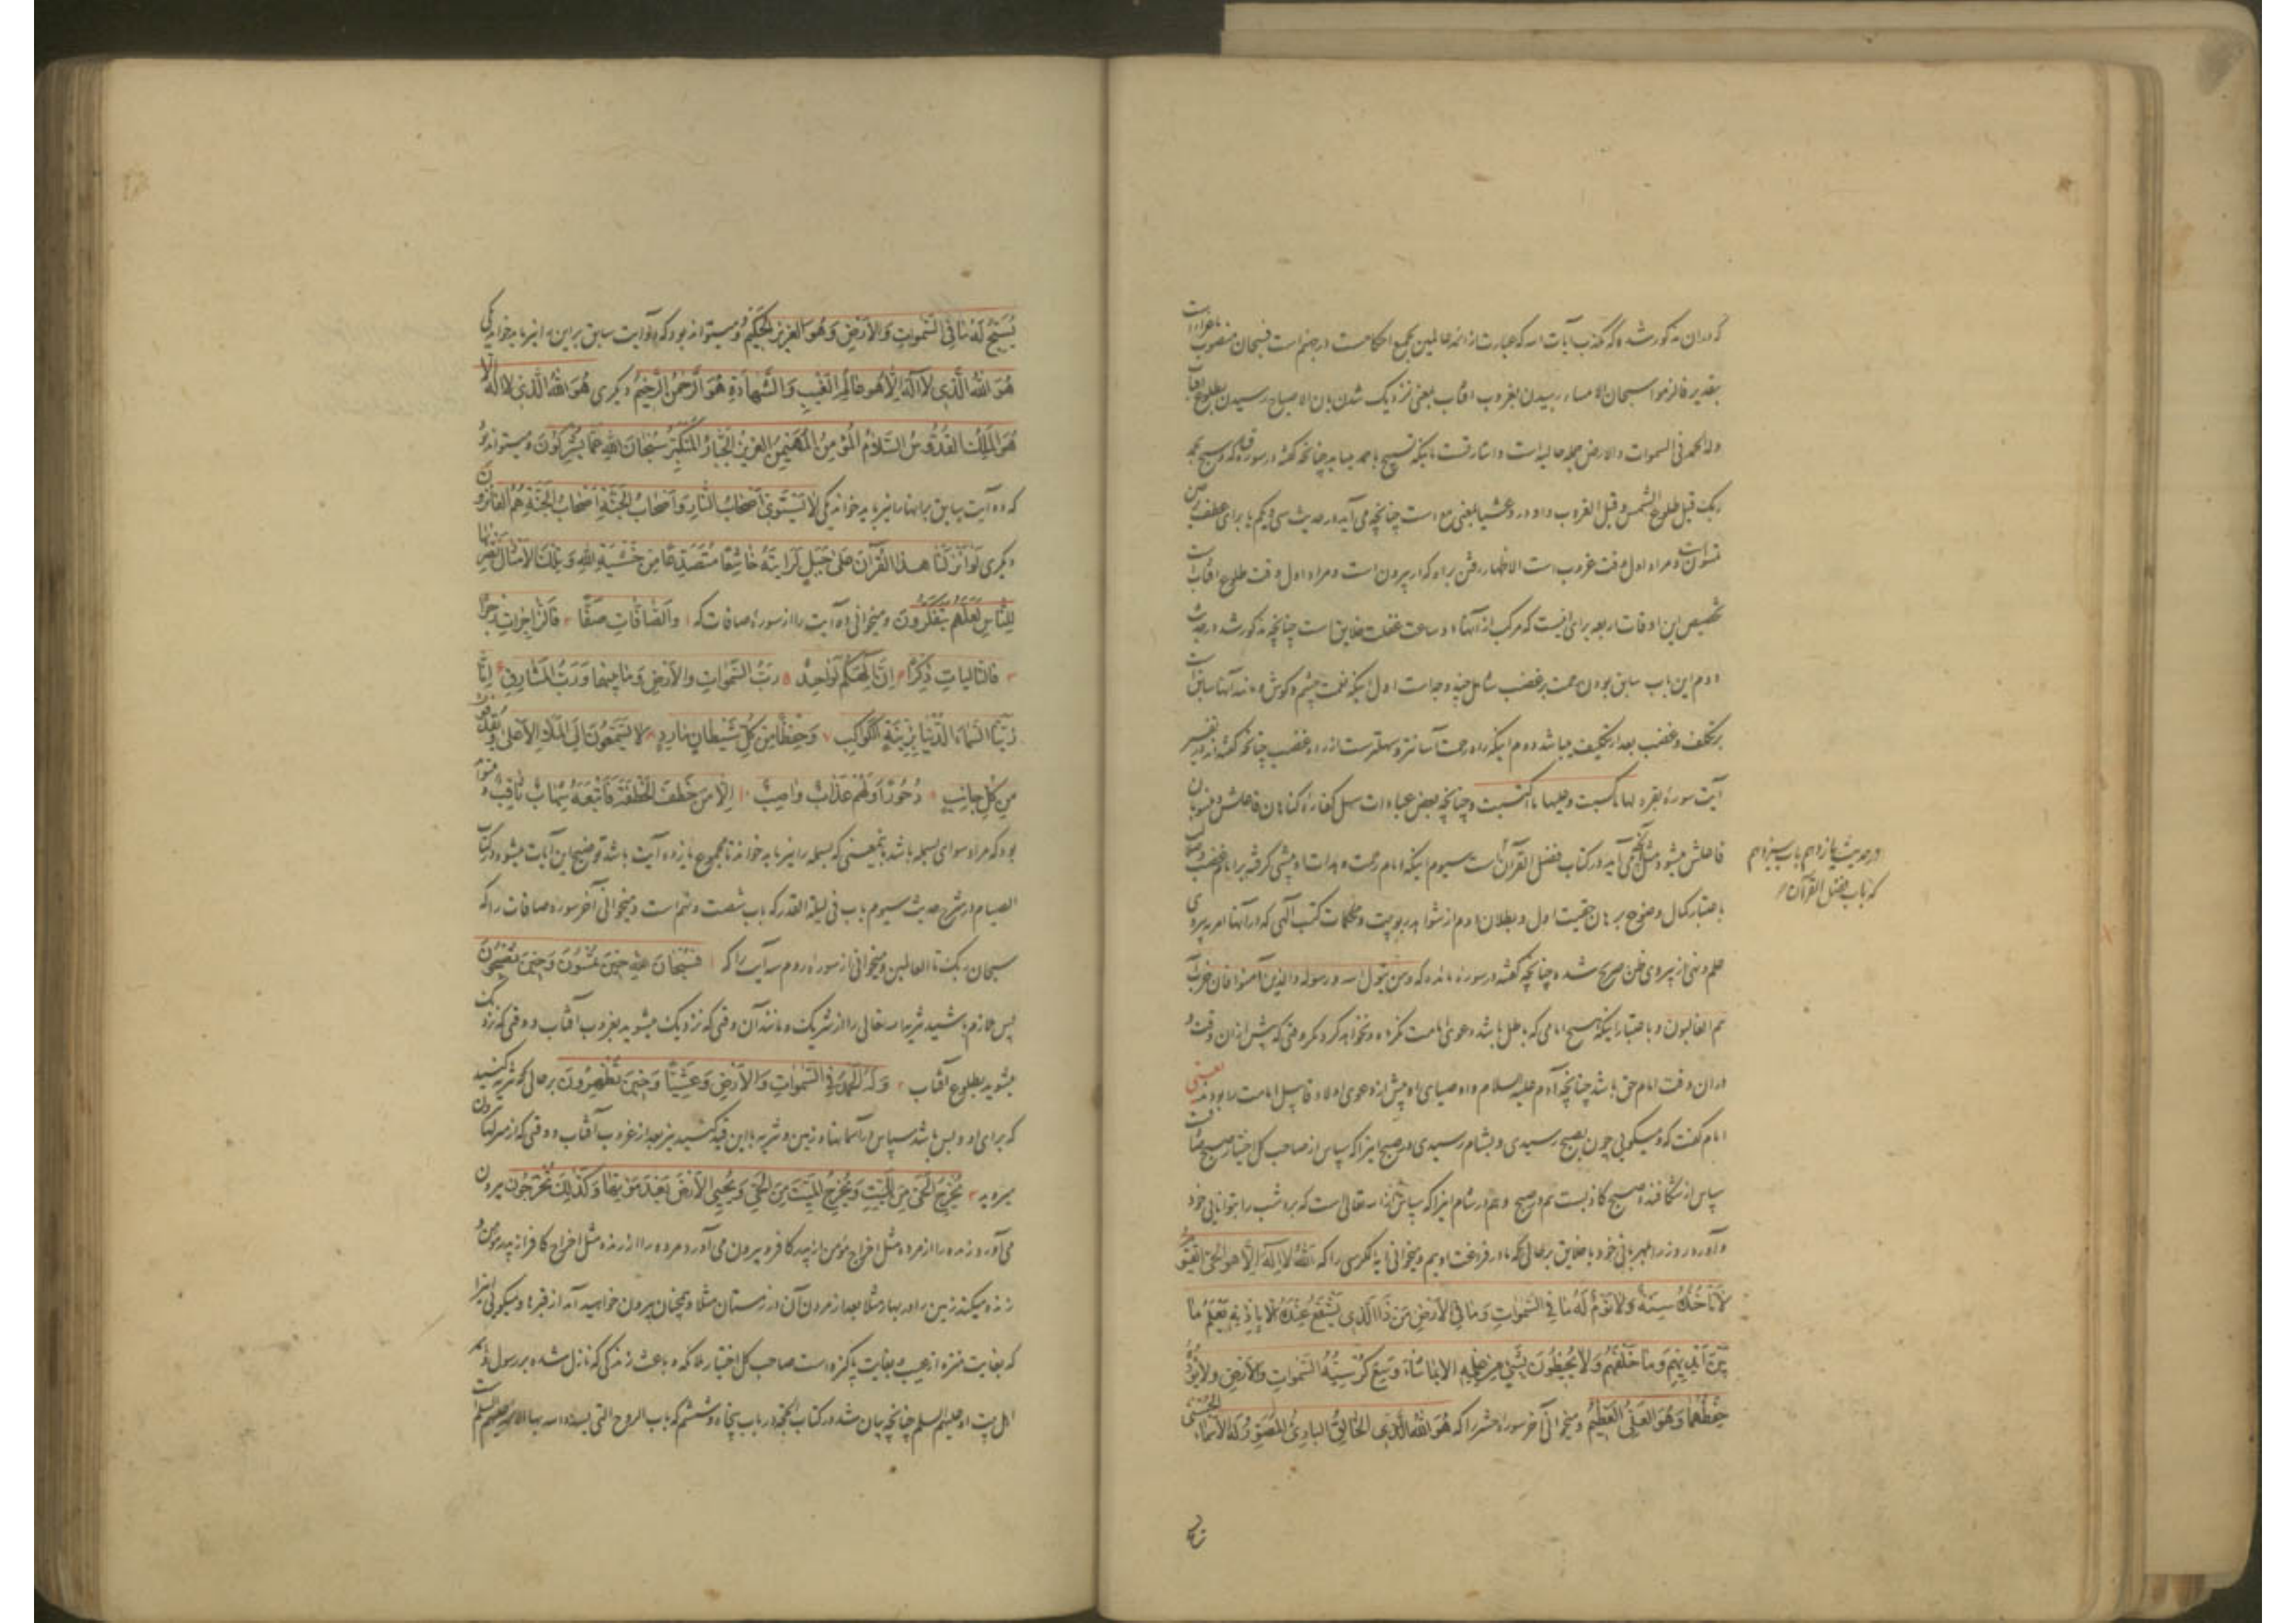 که در ان مذکور شده که مکذب آیات الله که عبارت از ائمه عالمین بجمیع احکامست در جهنم است فسبحان منصوب
بتقدیر فالزموا سبحان الامساء رسیدن بغروب افتاب یعنی نزدیک شدن بان الاصباح رسیدن بطلوع افتاب
وله الحمد فی السموات والارض جمله حالیه است و اشارتست باینکه تسبیح با حمد میباید چنانچه گفته در سوره ق که و سبح بحمد
ربک قبل طلوع الشمس و قبل الغروب واو در وعشیا بمعنی مع است چنانچه می آید در حدیث سی و یکم یا برای عطف بر حین
تمسون است و مراد اول وقت غروب است الاظهار رفتن براه که از بیرون است و مراد اول وقت طلوع افتاب است
تخصیص این اوقات اربعه برای اینست که مرکب از آنها دو ساعت غفلت خلایق است چنانچه مذکور شد در حدیث
دوم این باب سابق بودن رحمت بر غضب شامل چند وجه است اول اینکه نعمت چشم و گوش و مانند آنها سابق است
بر تکلیف و غضب بعد از تکلیف میباشد دوم اینکه راه رحمت آسانتر و سهلترست از راه غضب چنانچه گفته اند در تفسیر
آیت سورهٔ بقره لها ما کسبت وعلیها ما اکتسبت و چنانچه بعض عبادات سهل کفارهٔ گناهان فاعلش و منسوبان
فاعلش میشود مثل آنچه می آید در کتاب فضل القرآن است سیوم اینکه امام رحمت و هدایت او پیشی گرفته بر امام غضب و ضلالت
در حدیث یازدهم باب سیزدهم
که باب فضل القرآن
باعتبار کمال وضوح برهان حقیت اول و بطلان دوم از شواهد ربوبیت و محکمات کتب آلهی که در آنها امر به پیروی
علم و نهی از پیروی ظن صریح شده چنانچه گفته در سوره مائده که ومن یتول الله ورسوله والذین آمنوا فان حزب الله
هم الغالبون و باعتبار اینکه هیچ امامی که باطل باشد دعوی امامت نکرده و نخواهد کرد مگر وقتی که پیش از ان وقت و
دران وقت امام حق باشد چنانچه آدم علیه السلام و اوصیای او پیش از دعوی اولاد قابیل امامت را بودند یعنی
امام گفت که و میگویی چون بصبح رسیدی و بشام رسیدی در صبح اینرا که سپاس از صاحب کل اختیار صبح صادق است
سپاس از شکافنده صبح کاذبست هم در صبح و هم در شام اینرا که سپاس از الله تعالی است که برد شب را بتوانایی خود
و آورد روز را بمهربانی خود با خلایق برحالی که ما در فراغت اوییم و میخوانی آیة الکرسی را که اَللهُ لَا اِلٰهَ اِلَّا هُوَ الْحَیُّ الْقَیُّومُ
لَا تَأْخُذُهُ سِنَةٌ وَلَا نَوْمٌ لَهُ مَا فِی السَّمٰوَاتِ وَمَا فِی الْاَرْضِ مَنْ ذَا الَّذِی یَشْفَعُ عِنْدَهُ اِلَّا بِاِذْنِهِ یَعْلَمُ مَا
بَیْنَ اَیْدِیهِمْ وَمَا خَلْفَهُمْ وَلَا یُحِیطُونَ بِشَیْءٍ مِنْ عِلْمِهِ اِلَّا بِمَا شَاءَ وَسِعَ کُرْسِیُّهُ السَّمٰوَاتِ وَالْاَرْضَ وَلَا یَؤُدُهُ
حِفْظُهُمَا وَهُوَ الْعَلِیُّ الْعَظِیمُ و میخوانی آخر سوره حشر را که هُوَ اللهُ الَّذِی الْخَالِقُ الْبَارِئُ الْمُصَوِّرُ لَهُ الْاَسْمَاءُ الْحُسْنٰی
یُسَبِّحُ لَهُ مَا فِی السَّمٰوَاتِ وَالْاَرْضِ وَهُوَ الْعَزِیزُ الْحَکِیمُ و میتواند بود که دو آیت سابق بر این را نیز باید خواند یکی
هُوَ اللهُ الَّذِی لَا اِلٰهَ اِلَّا هُوَ عَالِمُ الْغَیْبِ وَالشَّهَادَةِ هُوَ الرَّحْمٰنُ الرَّحِیمُ دیگری هُوَ اللهُ الَّذِی لَا اِلٰهَ اِلَّا
هُوَ الْمَلِکُ الْقُدُّوسُ السَّلَامُ الْمُؤْمِنُ الْمُهَیْمِنُ الْعَزِیزُ الْجَبَّارُ الْمُتَکَبِّرُ سُبْحَانَ اللهِ عَمَّا یُشْرِکُونَ و میتواند بود
که دو آیت سابق بر اینها را نیز باید خواند یکی لَا یَسْتَوِی اَصْحَابُ النَّارِ وَاَصْحَابُ الْجَنَّةِ اَصْحَابُ الْجَنَّةِ هُمُ الْفَائِزُونَ
دیگری لَوْ اَنْزَلْنَا هٰذَا الْقُرْآنَ عَلٰی جَبَلٍ لَرَاَیْتَهُ خَاشِعًا مُتَصَدِّعًا مِنْ خَشْیَةِ اللهِ وَتِلْکَ الْاَمْثَالُ نَضْرِبُهَا
لِلنَّاسِ لَعَلَّهُمْ یَتَفَکَّرُونَ و میخوانی ده آیت را از سورهٔ صافات که ۱ وَالصَّافَّاتِ صَفًّا ۲ فَالزَّاجِرَاتِ زَجْرًا
۳ فَالتَّالِیَاتِ ذِکْرًا ۴ اِنَّ اِلٰهَکُمْ لَوَاحِدٌ ۵ رَبُّ السَّمٰوَاتِ وَالْاَرْضِ وَمَا بَیْنَهُمَا وَرَبُّ الْمَشَارِقِ ۶ اِنَّا
زَیَّنَّا السَّمَاءَ الدُّنْیَا بِزِینَةٍ الْکَوَاکِبِ ۷ وَحِفْظًا مِنْ کُلِّ شَیْطَانٍ مَارِدٍ ۸ لَا یَسَّمَّعُونَ اِلَی الْمَلَاِ الْاَعْلٰی وَیُقْذَفُونَ
مِنْ کُلِّ جَانِبٍ ۹ دُحُورًا وَلَهُمْ عَذَابٌ وَاصِبٌ ۱۰ اِلَّا مَنْ خَطِفَ الْخَطْفَةَ فَاَتْبَعَهُ شِهَابٌ ثَاقِبٌ و میتواند
بود که مراد سوای بسمله باشد بمعنی که بسمله را نیز باید خواند تا مجموع یازده آیت باشد توضیح این آیات میشود در کتاب
الصیام در شرح حدیث سیوم باب فی لیلة القدر که باب شصت و نهم است و میخوانی آخر سوره صافات را که
سبحان ربک تا العالمین و میخوانی از سوره روم سه آیت را که ۱ فَسُبْحَانَ اللهِ حِینَ تُمْسُونَ وَحِینَ تُصْبِحُونَ
پس ملازم باشید تنزیه الله تعالی را از شریک و مانند آن وقتی که نزدیک میشوید بغروب آفتاب و وقتی که نزدیک
میشوید بطلوع آفتاب ۲ وَلَهُ الْحَمْدُ فِی السَّمٰوَاتِ وَالْاَرْضِ وَعَشِیًّا وَحِینَ تُظْهِرُونَ برحالی که تنزیه کنید
که برای او و بس باشد سپاس در آسمانها و زمین و تنزیه با این قید کنید نیز بعد از غروب آفتاب و وقتی که از
میروید ۳ یُخْرِجُ الْحَیَّ مِنَ الْمَیِّتِ وَیُخْرِجُ الْمَیِّتَ مِنَ الْحَیِّ وَیُحْیِی الْاَرْضَ بَعْدَ مَوْتِهَا وَکَذٰلِکَ تُخْرَجُونَ بیرون
می آورد زنده را از مرده مثل اخراج مؤمن از پدر کافر و بیرون می آورد مرده را از زنده مثل اخراج کافر از پدر مؤمن و
زنده میکند زمین را در بهار مثلا بعد از مردن آن در زمستان مثلا و همچنان بیرون خواهید آمد از قبرها و میگویی اینرا
که بغایت منزه از عیب و بغایت پاکیزه است صاحب کل اختیار ملائکه و باعث زندگی که نازل شده بر رسول و بر
اهل بیت او علیهم السلام چنانچه بیان شد در کتاب الحجة در باب پنجاه و ششم که باب الروح التی یسدد الله بها الائمة علیهم السلام است